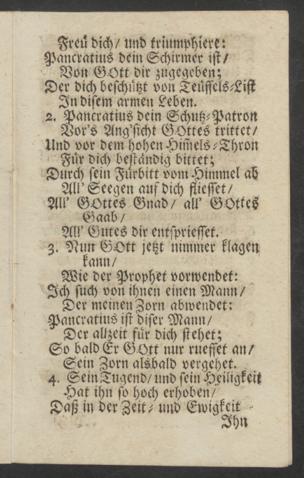 Freü dich/ und triumphiere:
Pancratius dein Schirmer ist/
Von GOtt dir zugegeben;
Der dich beschützt von Teüffels-List
In disem armen Leben.
2. Pancratius dein Schutz-Patron
Vor's Ang'sicht GOttes trittet/
Und vor dem hohen Him̄els-Thron
Für dich beständig bittet;
Durch sein Fürbitt vom Himmel ab
All' Seegen auf dich fliesset/
All' GOttes Gnad/ all' GOttes
Gaab/
All' Gutes dir entspriesset.
3. Nun GOtt jetzt nimmer klagen
kann/
Wie der Prophet vorwendet:
Ich such von ihnen einen Mann/
Der meinen Zorn abwendet:
Pancratius ist diser Mann/
Der allzeit für dich stehet;
So bald Er GOtt nur rueffet an/
Sein Zorn alsbald vergehet.
4. Sein Tugend/ und sein Heiligkeit
Hat ihn so hoch erhoben/
Daß in der Zeit- und Ewigkeit
Ihn